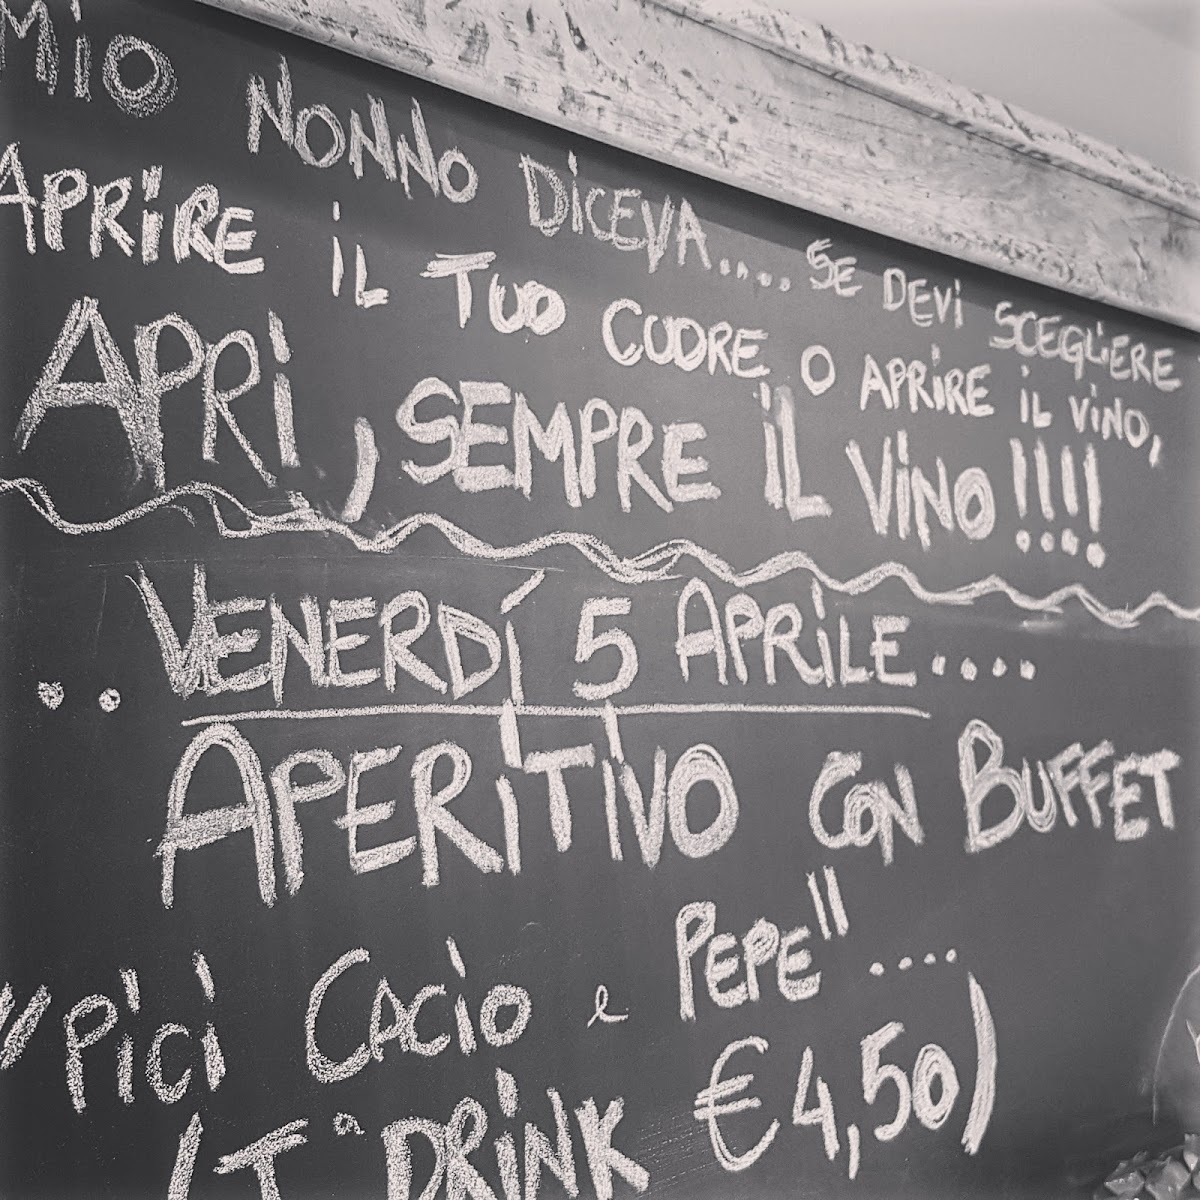 MIO NONNO DICEVA..... SE DEVI SCEGLIERE
APRIRE IL TUO CUORE O APRIRE IL VINO,
APRI, SEMPRE IL VINO!!!!
.. VENERDÍ 5 APRILE....
APERITIVO CON BUFFET
"PICI CACIO e PEPE"....
(Tª DRINK € 4,50)